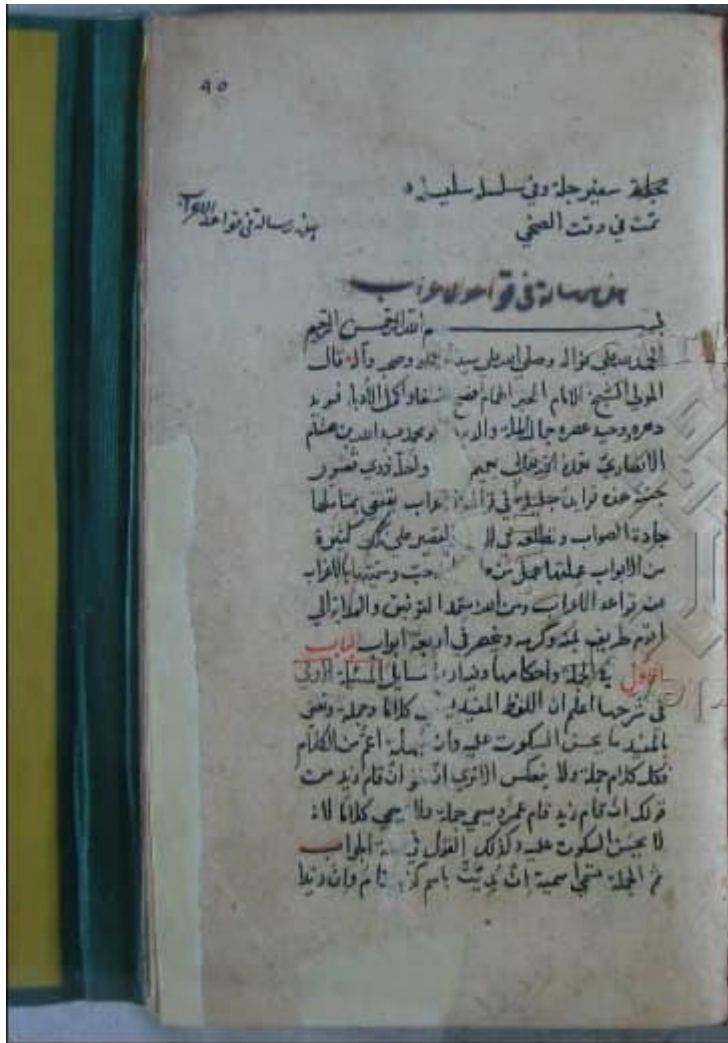 ٩٥
تمت في وقت الضحى
هذه رسالة في قواعد الاعراب
هذه رسالة في قواعد الاعراب
بسم الله الرحمن الرحيم
الحمد لله على نواله وصلى الله على سيدنا محمد وصحبه وآله قال
المولى الشيخ الامام الحبر الهمام
دهره وحيد عصره جمال الملة والدين ابو محمد عبد الله بن هشام
الانصاري
جليلة في قواعد الاعراب تقتفي بمتأملها
جادة الصواب وتطلعه في القصير على نكت كثيرة
من الابواب عملتها عمل من طب لمن حب وسميتها بالاعراب
عن قواعد الاعراب ومن الله استمد التوفيق والهداية الى
اقوم طريق بمنه وكرمه وينحصر في اربعة ابواب الباب
الاول في الجملة واحكامها وفيه اربع مسايل المسئلة الاولى
في شرحها اعلم ان اللفظ المفيد يسمى كلاما وجملة ونعني
بالمفيد ما يحسن السكوت عليه وان الجملة اعم من الكلام
فكل كلام جملة ولا ينعكس الا ترى ان نحو ان قام زيد من
قولك ان قام زيد قام عمرو يسمى جملة ولا يسمى كلاما لانه
لا يحسن السكوت عليه وكذلك القول في جملة الجواب
ثم الجملة تسمى اسمية ان بديت باسم كزيد قائم وان زيدا